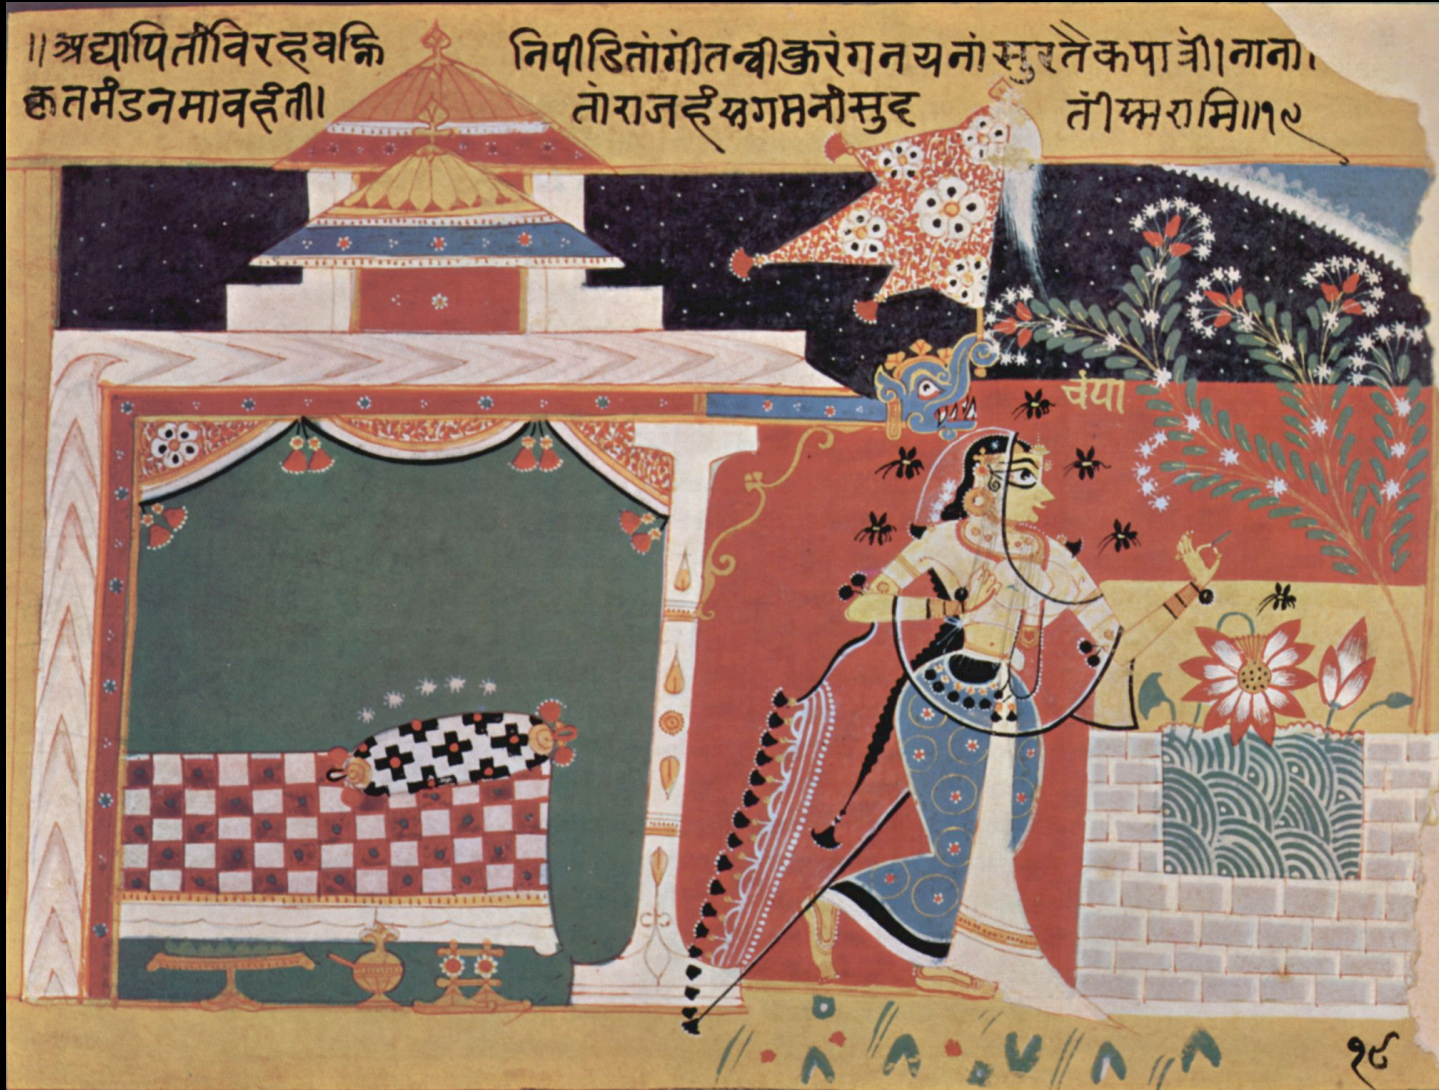 ॥अद्यापितांविरहवह्नि निपीडितांगीतन्वीकुरंगनयनांसुरतैकपात्रीं।नाना
कृतमंडनमावहंतीं। तांराजहंसगमनांसुद तींस्मरामि॥१९
चंपा